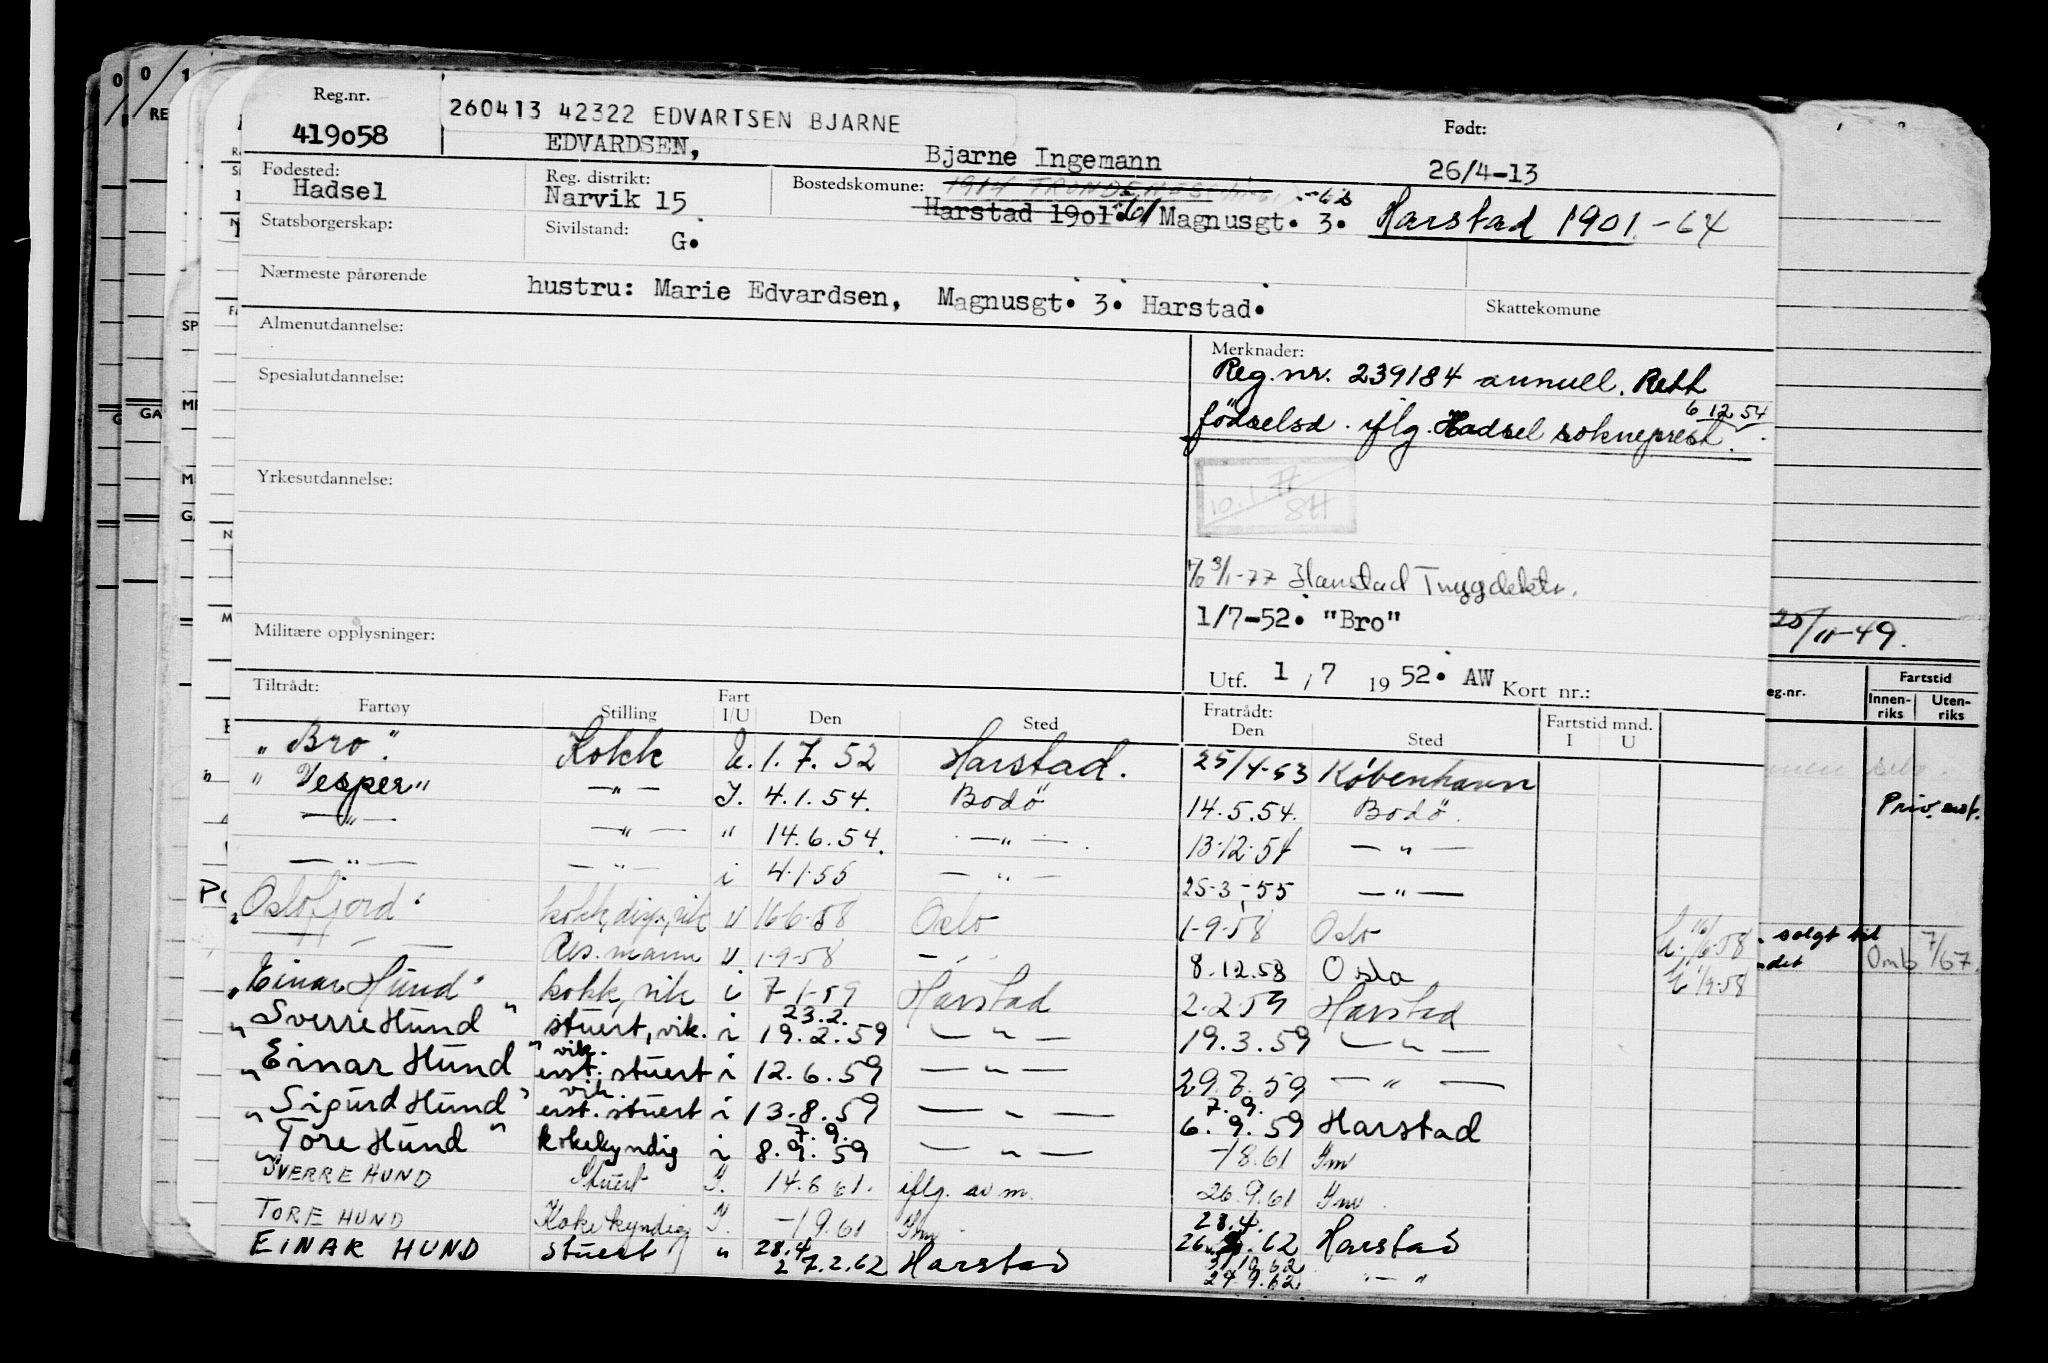 Reg.nr.
419o58
260413 42322 EDVARTSEN BJARNE
EDVARDSEN, Bjarne Ingemann
Født:
26/4-13
Fødested:
Hadsel
Reg. distrikt:
Narvik 15
Bostedskomune: 1914 TRONDENES -63
Harstad 1901 -61 Magnusgt. 3. Harstad 1901 -64
Statsborgerskap:
Sivilstand: G.
Nærmeste pårørende
hustru: Marie Edvardsen, Magnusgt. 3. Harstad.
Skattekomune
Almenutdannelse:
Spesialutdannelse:
Yrkesutdannelse:
Militære opplysninger:
Merknader:
Reg.nr. 239184 annull. Rett
fødselsd. iflg. Hadsel sokneprest 6 12 54
10.1 77
84
3/1-77 Harstad Trygdektr.
1/7-52. "Bro"
Utf. 1 / 7 19 52. AW Kort nr.:
Tiltrådt:
Fartøy Stilling Fart I/U Den Sted Fratrådt: Den Sted Fartstid mnd. I U
"Bro" Kokk U. 1.7.52 Harstad. 25/4-53 København
"Vesper" —"— I. 4.1.54. Bodö 14.5.54. Bodö.
—"— —"— " 14.6.54. —"— 13.12.54 —"—
—"— —"— i 4.1.55 —"— 25-3-55 —"—
"Oslofjord" kokk, disp, vik u 16-6-58 Oslo 1-9-58 Oslo 16/6-58
—"— Res. mann u 1-9-58 —"— 8.12.58 Oslo 1/9-58
"Einar Hund" kokk, vik i 7 1-59 Harstad 2.2.59 Harstad
"Sverre Hund" stuert, vik. i 23.2. 19.2.59 —"— 19.3.59 —"—
"Einar Hund" vik. erst. stuert i 12.6.59 —"— 29.7.59 —"—
"Sigurd Hund" vik. erst. stuert i 13.8.59 —"— 7.9. 6.9.59 Harstad
"Tore Hund" kokekyndig i 7.9. 8.9.59 —"— -/8.61 Inv
SVERRE HUND Stuert I. 14.8 61. iflg. av m. 26.9.61 Inv.
TORE HUND Kokekyndig I. -/9.61 Inv 28.4.
EINAR HUND stuert " 28.4 27.2.62 Harstad 26. .62 Harstad
29.9.62 "—"
25/11-49.
eg.nr.
Fartstid
Innen-
riks
Uten-
riks
Priv. ant.
solgt til
ndet
Omb 7/67.